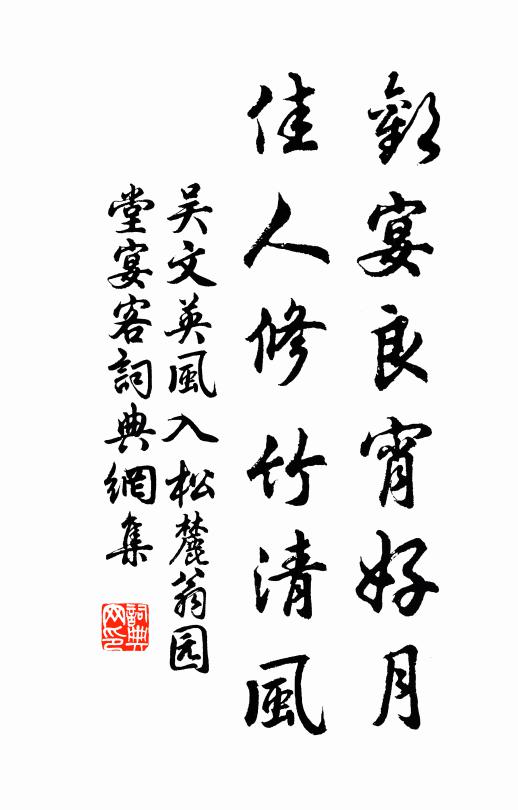 歡宴良宵好月
佳人修竹清風
吴文英風入松麓翁园
堂宴客詞典網集
詞典网印